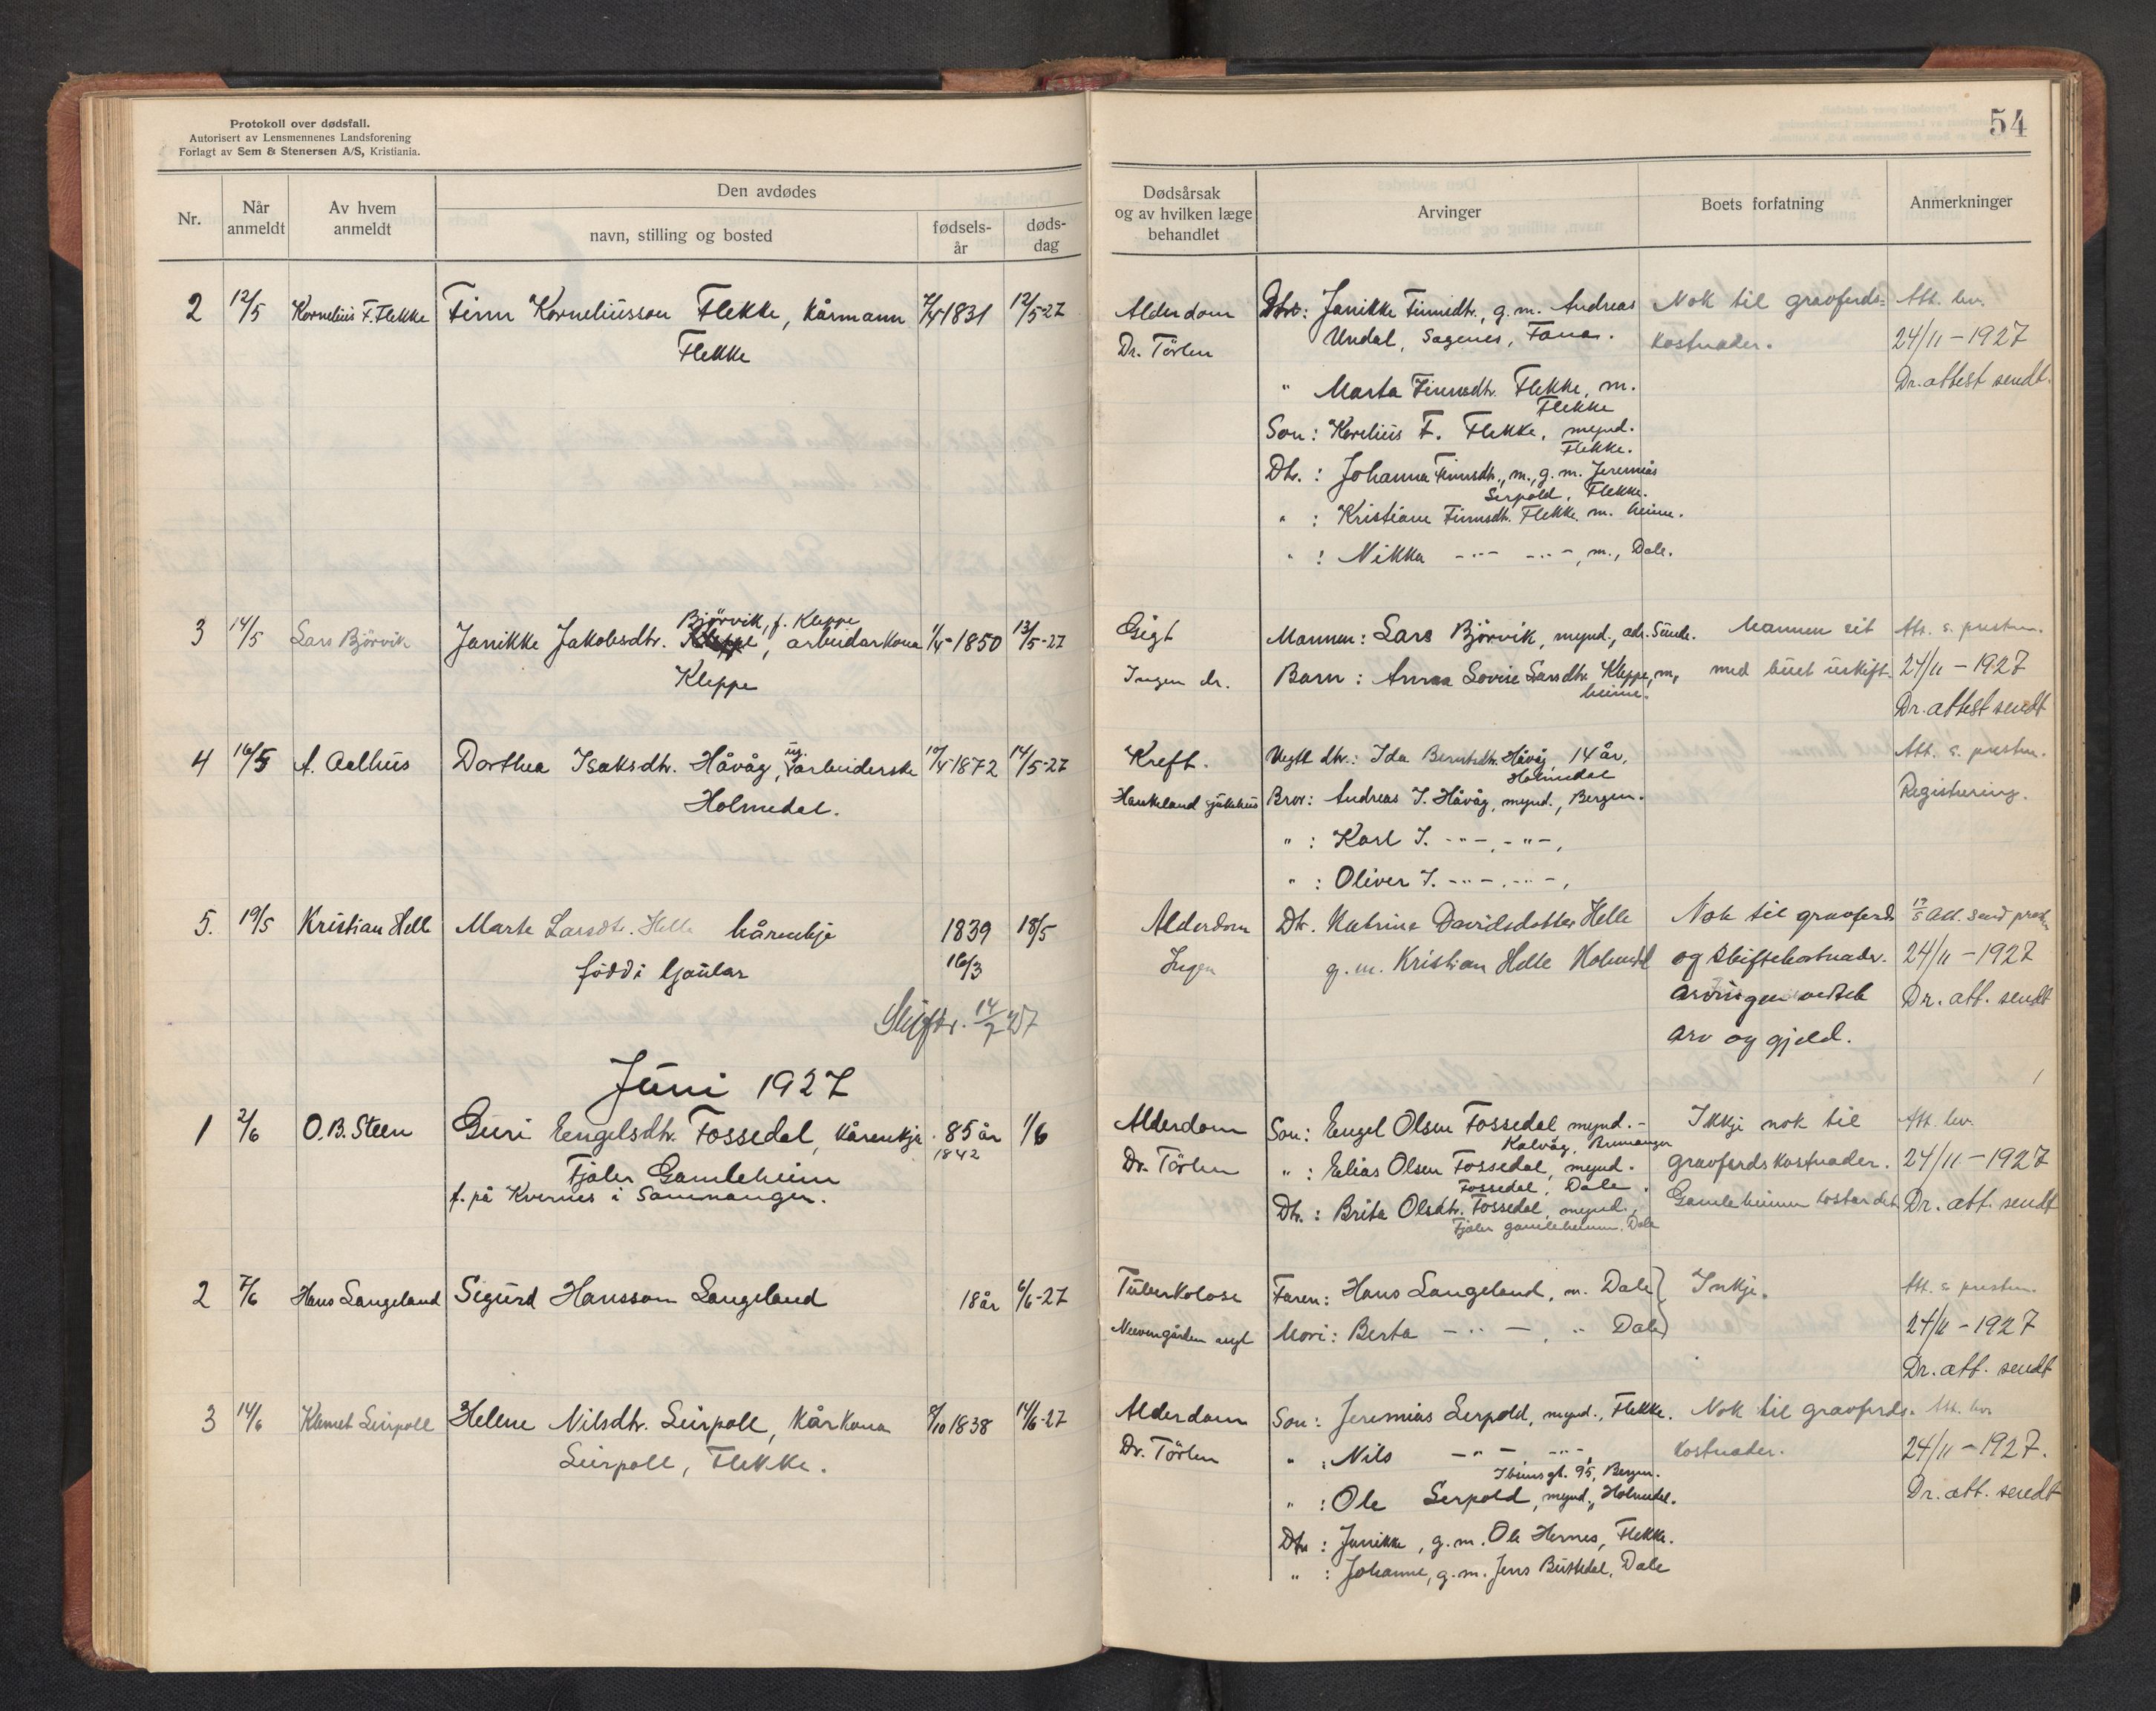 Protokoll over dødsfall.
Autorisert av Lensmennenes Landsforening
Forlagt av Sem & Stenersen A/S, Kristiania.
54
Nr.
Når anmeldt
Av hvem anmeldt
Den avdødes
navn, stilling og bosted
fødsels-år
døds-dag
Dødsårsak og av hvilken læge behandlet
Arvinger
Boets forfatning
Anmerkninger
2 12/5 Kornelius F. Flekke Finn Korneliusson Flekke, kårmann 1831 12/5-27
Flekke
Alderdom
Dr. Törlen
Dtr: Janikke Finnsdtr., g.m. Andreas
Undal, Sagenes, Fana.
" Marta Finnsdtr. Flekke, m.
Flekke
Son: Kornelius F. Flekke, mynd.
Flekke.
Dtr.: Johanna Finnsdtr., m., g.m. Jeremias
Serpold, Flekke.
" : Kristiane Finnsdtr. Flekke m. heime.
" : Nikka -"- -"-, m., Dale.
Nok til gravferds-
kostnader.
Att. lev.
24/11-1927
Dr. attest sendt.
3 14/5 Lars Björvik Janikke Jakobsdtr. Björvik, f. Kleppe, arbeidarkona 1850 13/5-27
Kleppe
Gigt
Ingen dr.
Mannen: Lars Björvik, mynd., adr. Sünde.
Barn: Anna Lovise Larsdtr. Kleppe, m,
heime.
Mannen sit
med buet uskift.
Att. s. presten.
24/11-1927
Dr. attest sendt
4 16/5 A. Aalhus Dorthea Isaksdtr. Håvåg, ug. arbeiderske 19/4 1872 14/5-27
Holmedal.
Kreft.
Haukeland sjukehus
Uegte dtr.: Ida Berntsdtr. Håvåg, 14 år,
Holmedal
Bror: Andreas I. Håvåg, mynd., Bergen.
" : Karl I. -"-, -"-,
" : Oliver I. -"-, -"-,
Att. s. presten.
Registrering.
5. 19/5 Kristian Helle Marte Larsdtr. Helle kårenkje 1839 18/5
född i Gaular 16/3
Skiftr. 14/7 27
Alderdom
Ingen
Dtr. Katrina Davidsdotter Helle
g.m. Kristian Helle Holmedal
Nok til gravferds
og skiftekostnader.
Arvingen vedtek
arv og gjeld.
Att. send presten
24/11-1927
Dr. att. sendt
Juni 1927
1 2/6 O.B. Steen Guri Engelsdtr. Fossedal, kårenkje. 85 år 1/6
1842
Fjaler Gamleheim
f. på Kvernes i Sammanger.
Alderdom
Dr. Törlen
Son: Engel Olsen Fossedal mynd.-
Kalvåg, Bremanger
" : Elias Olsen Fossedal, mynd.
Fossedal, Dale.
Dtr.: Brita Olsdtr. Fossedal, mynd.,
Fjaler gamleheim, Dale
Ikkje nok til
gravferdskostnader.
Gamleheimen kostar det
Att. lev.
24/11-1927
Dr. att. sendt
2 7/6 Hans Langeland Sigurd Hansson Langeland 18 år 6/6-27
Tuberkolose
Neevengården asyl
Faren: Hans Langeland, m. Dale
Mori: Berta -"-, " Dale
Inkje.
Att. s. presten.
24/11-1927
Dr. att. sendt
3 14/6 Klemet Leirpoll Helene Nilsdtr. Leirpoll, kårkona 8/10 1838 14/6-27
Leirpoll, Flekke.
Alderdom
Dr. Törlen
Son: Jeremias Lerpold, mynd., Flekke.
" : Nils -"- -"-
Ibsensgt. 95, Bergen.
" : Ole Lerpold, mynd., Holmedal.
Dtr : Janikke, g.m. Ole Hernes, Flekke.
" : Johanne, g.m. Jens Bustedal, Dale
Nok til gravferds-
kostnader.
Att. lev
24/11-1927.
Dr. att. sendt